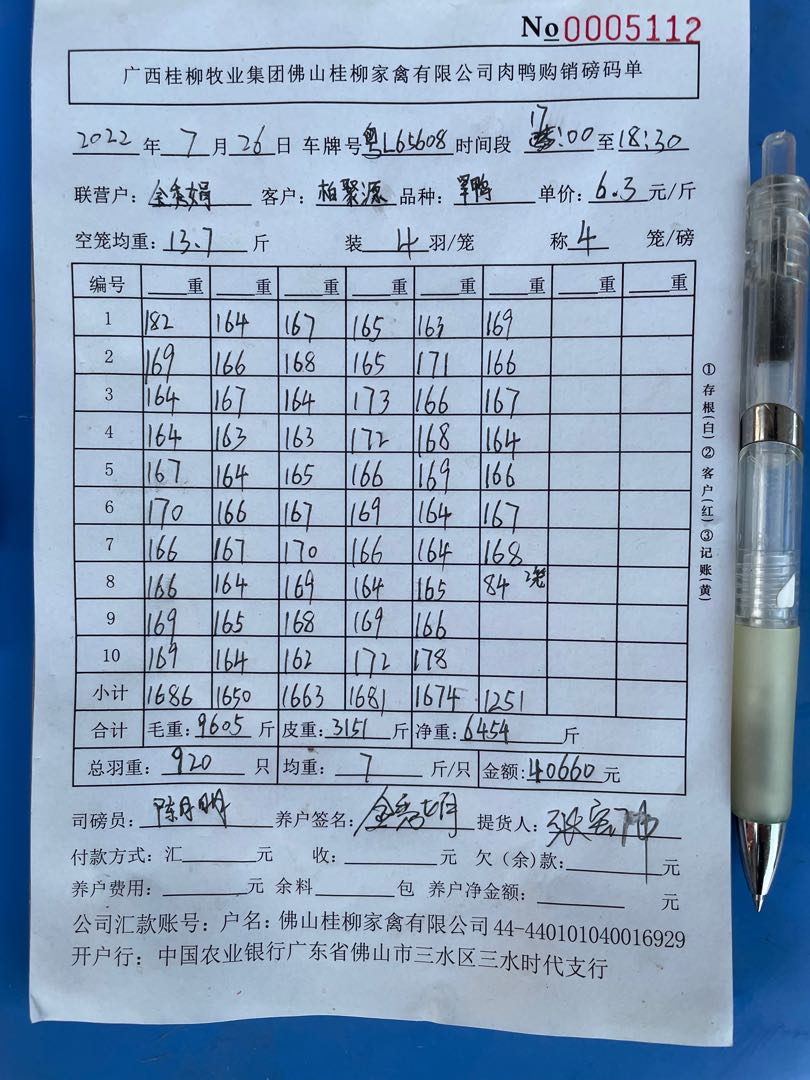 No 0005112
广西桂柳牧业集团佛山桂柳家禽有限公司肉鸭购销磅码单
2022年7月26日 车牌号粤L65608 时间段 17:00至18:30
联营户: 客户:柏聚源 品种: 鸭 单价:6.3元/斤
空笼均重:13.7斤 装4羽/笼 称4笼/磅
编号 重 重 重 重 重 重 重 重
1 182 164 167 165 163 169
2 169 166 168 165 171 166
3 164 167 164 173 166 167
4 164 163 163 172 168 164
5 167 164 165 166 169 166
6 170 166 167 169 164 167
7 166 167 170 166 164 168
8 166 164 169 164 165 84 2笼
9 169 165 168 169 166
10 169 164 162 172 178
小计 1686 1650 1663 1681 1674 1251
合计 毛重:9605斤 皮重:3151斤 净重:6454斤
总羽重:920只 均重:7斤/只 金额:40660元
司磅员: 养户签名: 提货人:
付款方式:汇 元 收: 元 欠(余)款: 元
养户费用: 元 余料 包 养户净金额: 元
公司汇款账号:户名:佛山桂柳家禽有限公司44-440101040016929
开户行:中国农业银行广东省佛山市三水区三水时代支行
①存根(白)②客户(红)③记账(黄)